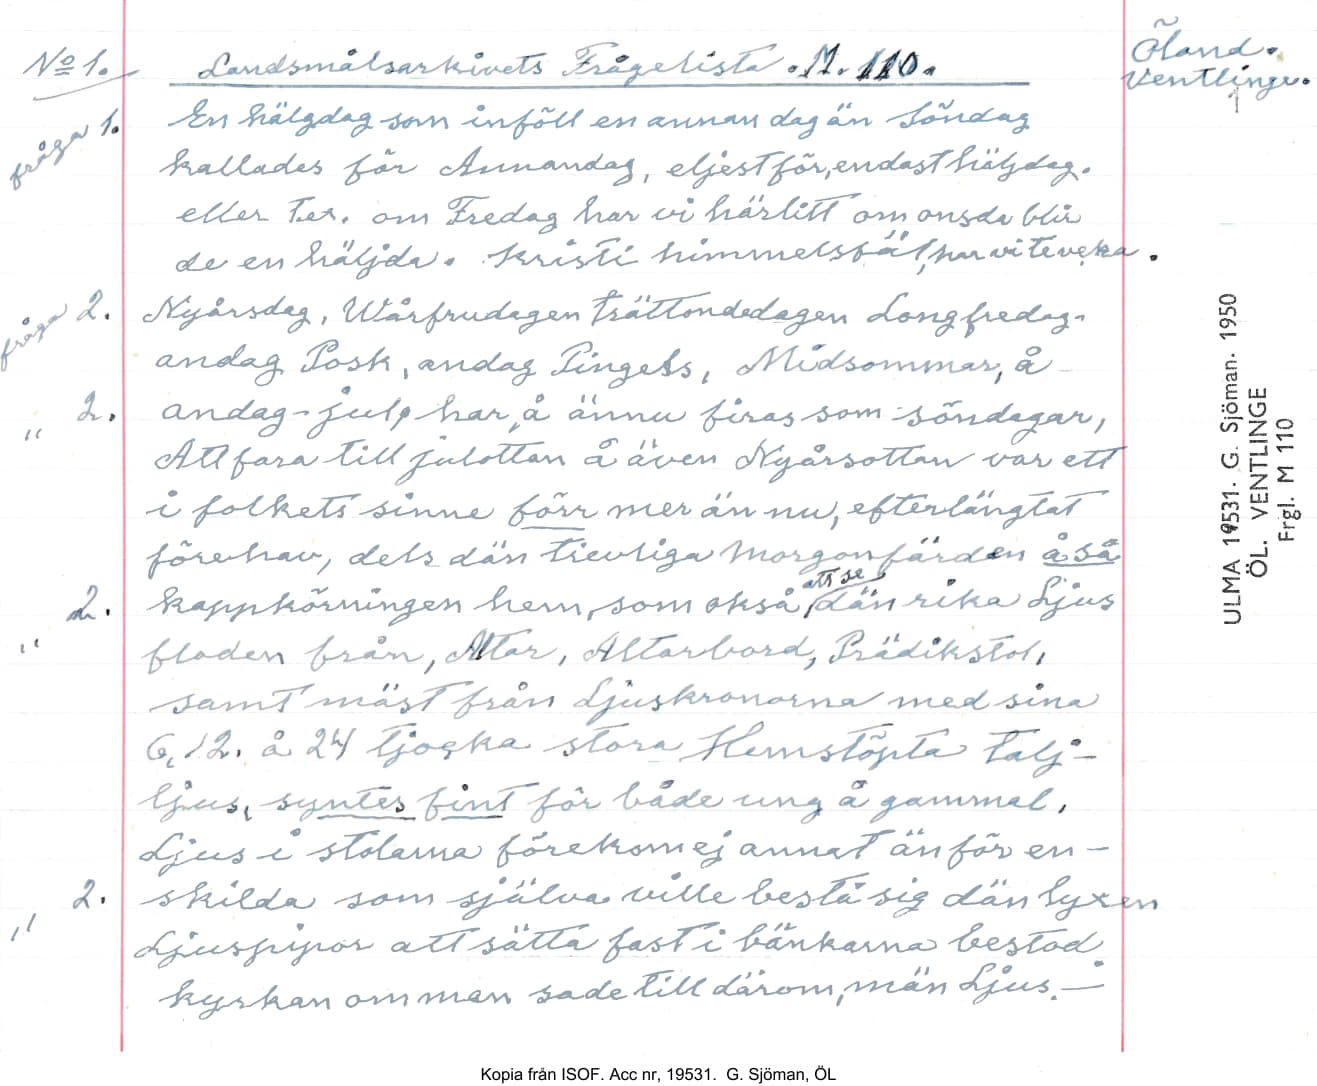 Nº 1. Landsmålsarkivets Frågelista. M. 110.
Öland.
Ventlinge.
1
fråga 1. En hälgdag som inföll en annan dag än Söndag
kallades för Annandag, eljest för, endast häljdag.
eller t.ex. om Fredag har vi härlitt om onsda blir
de en häljda. Kristi himmelsfäl, har vi te veka.
fråga 2. Nyårsdag, Wårfrudagen trättondedagen Longfredag.
andag Posk, andag Pingets, Midsommar, å
" 2. andag-jula har, å ännu firas som söndagar,
Att fara till julottan å även Nyårsottan var ett
i folkets sinne förr mer än nu, efterlängtat
förehav, dels dän trevliga Morgonfärden å så
" 2. kappkörningen hem, som också, att se dän rika Ljus
floden från, Altar, Altarbord, Prädikstol,
samt mäst från Ljuskronorna med sina
6, 12. å 24 tjocka stora Hemstöpta Talj-
ljus, syntes fint för både ung å gammal.
Ljus i stolarna förekom ej annat än för en-
" 2. skilda som själva ville bestå sig dän lyxen
Ljuspipor att sätta fast i bänkarna bestod
kyrkan om man sade till därom, män Ljus.-
ULMA 19531. G. Sjöman. 1950
ÖL. VENTLINGE
Frgl. M 110
Kopia från ISOF. Acc nr, 19531. G. Sjöman, ÖL